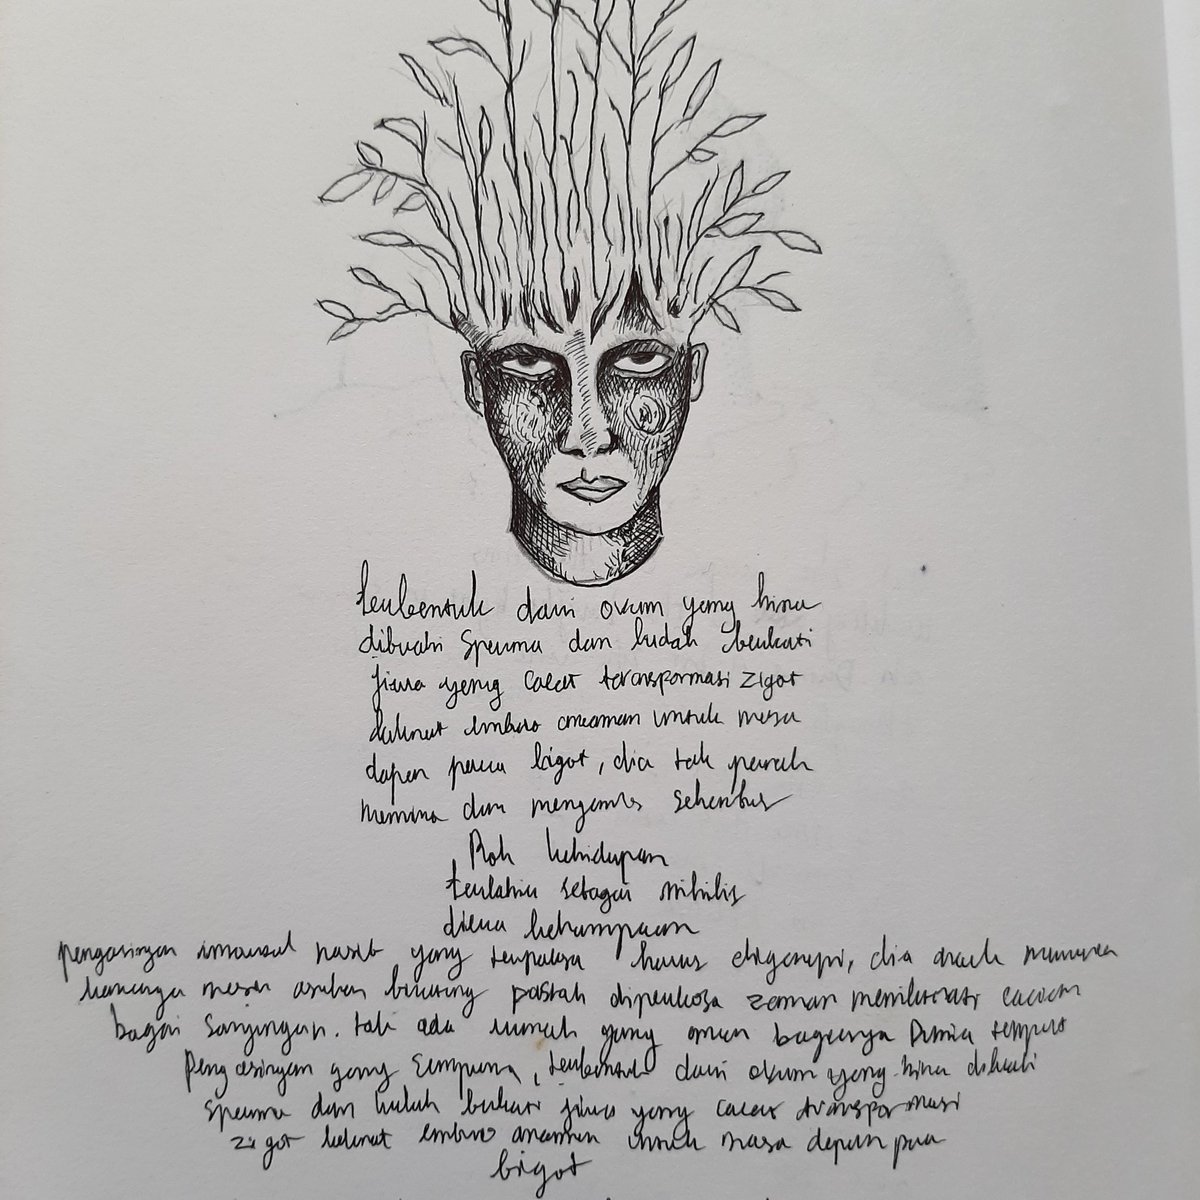 terbentuk dari ovum yang hina
dibuahi sperma dan ludah berkati
jiwa yang cacat transpormasi zigot
embrio ancaman untuk masa
depan para bigot, dia tak pernah
meminta dan mengemis
Roh kehidupan
terlahir sebagai nihilis
kehampaan
pengasingan nasib yang terpaksa harus digenapi, dia
mesin pasrah diperkosa zaman menikmati
bagai sanjungan. tak ada rumah yang aman baginya Dunia tempat
Pengasingan yang sempurna, terbentuk dari ovum yang hina dibuahi
sperma dan ludah berkati jiwa yang cacat transpormasi
zigot embrio ancaman untuk masa depan para
bigot